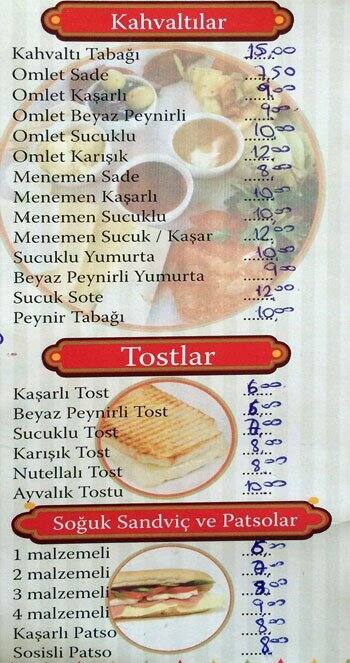 Kahvaltılar
Kahvaltı Tabağı 15,00
Omlet Sade 7,50
Omlet Kaşarlı 9,00
Omlet Beyaz Peynirli 9,00
Omlet Sucuklu 10,00
Omlet Karışık 12,00
Menemen Sade 8,00
Menemen Kaşarlı 10,00
Menemen Sucuklu 10,00
Menemen Sucuk / Kaşar 12,00
Sucuklu Yumurta 10,00
Beyaz Peynirli Yumurta 9,00
Sucuk Sote 12,00
Peynir Tabağı 10,00
Tostlar
Kaşarlı Tost 6,00
Beyaz Peynirli Tost 6,00
Sucuklu Tost 7,00
Karışık Tost 8,00
Nutellalı Tost 8,00
Ayvalık Tostu 10,00
Soğuk Sandviç ve Patsolar
1 malzemeli
2 malzemeli 7,00
3 malzemeli 8,00
4 malzemeli 9,00
Kaşarlı Patso 8,00
Sosisli Patso 8,00